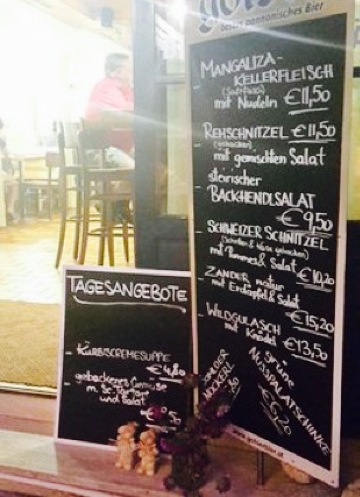 besten pannonisches Bier
MANGALIZA-
KELLERFLEISCH
mit Nudeln €11,50
REHSCHNITZEL €11,50
(gebacken)
mit gemischten Salat
steirischer
BACKHENDLSALAT
€9,50
SCHWEIZER SCHNITZEL
(Schinken & Käse gebacken)
mit Pommes & Salat €10,20
ZANDER natur
mit Erdäpfel & Salat
€15,20
WILDGULASCH
mit Knödel €13,50
GRÜNE
NUSSPALATSCHINKE
€6,20
NOCKERL
TAGESANGEBOTE
KÜRBISCREMESUPPE
€4,80
gebackenes Gemüse
m. Sc. Tartare
und Salat